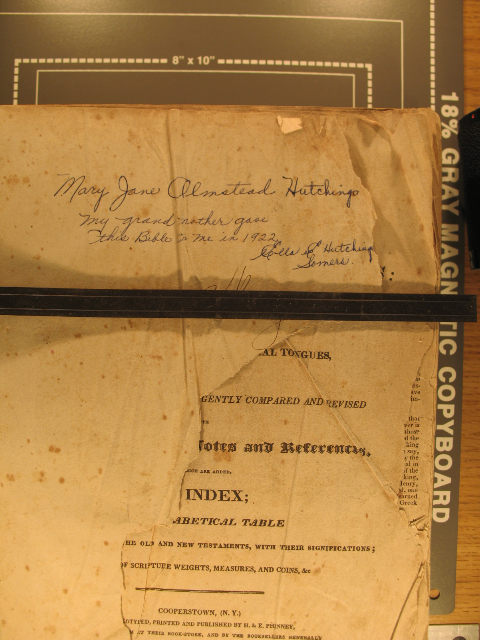 8" x 10"
18% GRAY MAGNETIC COPYBOARD
Mary Jane Olmstead Hutchings
My grand mother gave
this Bible to me in 1922
Ella E Hutching
Somers.
AL TONGUES,
GENTLY COMPARED AND REVISED
Notes and References,
ARE ADDED,
INDEX;
ABETICAL TABLE
HE OLD AND NEW TESTAMENTS, WITH THEIR SIGNIFICATIONS;
OF SCRIPTURE WEIGHTS, MEASURES, AND COINS, &c
COOPERSTOWN, (N. Y.)
OTYPED, PRINTED AND PUBLISHED BY H. & E. PHINNEY,
AT THEIR BOOK-STORE, AND BY THE BOOKSELLERS GENERALLY